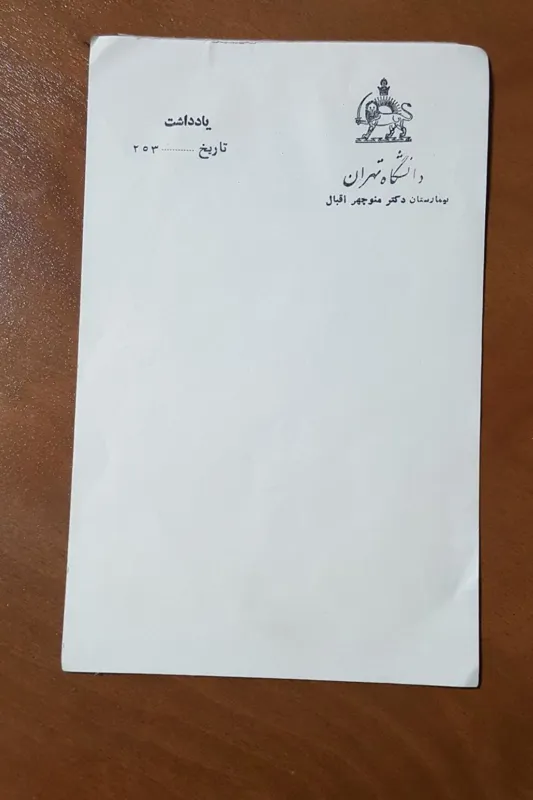 دانشگاه تهران
بیمارستان دکتر منوچهر اقبال
یادداشت
تاریخ ............ ۲۵۳